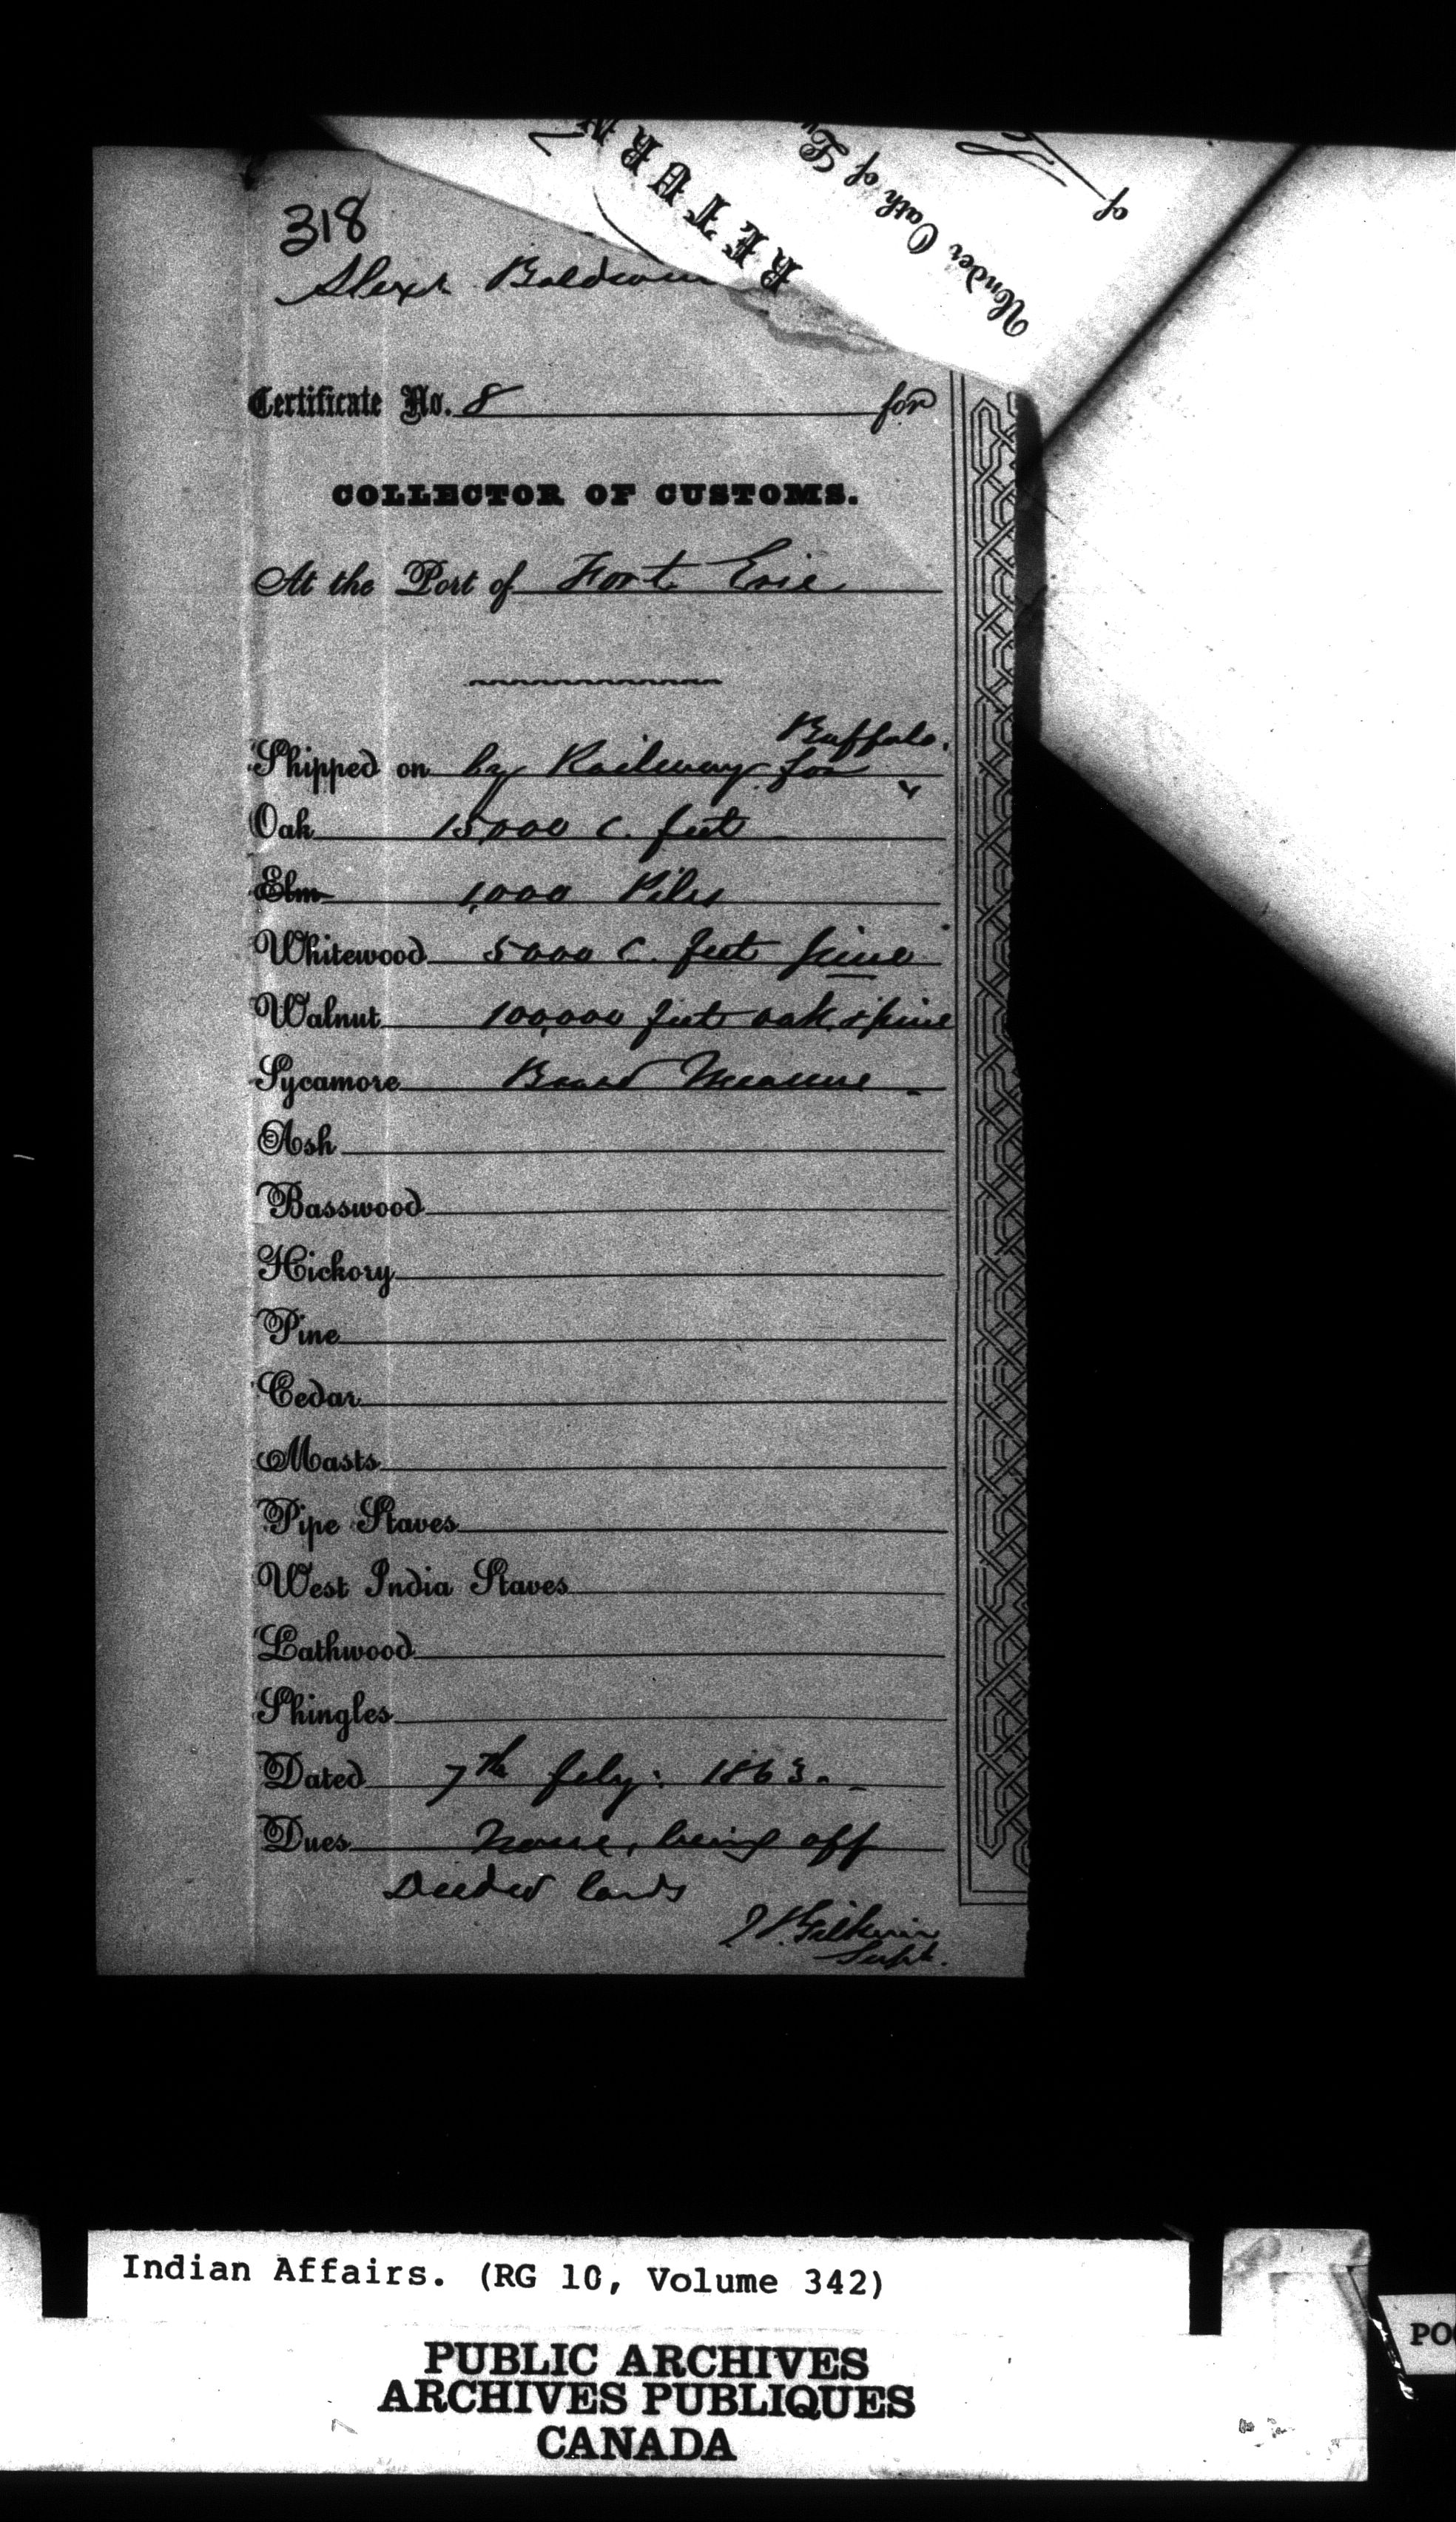 RETURN
Under Oath of
of
318
Alexr. Baldwin
Certificate No. 8 for
COLLECTOR OF CUSTOMS.
At the Port of Fort Erie
Buffalo.
Shipped on by Railway for
Oak 15,000 c. feet
Elm 1,000 Piles
Whitewood 5000 C. feet pine
Walnut 100,000 feet oak & pine
Sycamore Board Measure
Ash
Basswood
Hickory
Pine
Cedar
Masts
Pipe Staves
West India Staves
Lathwood
Shingles
Dated 7th feby: 1863.
Dues None, being off
Deeded lands
J.T. Gilkison
Supt.
Indian Affairs. (RG 10, Volume 342)
PUBLIC ARCHIVES
ARCHIVES PUBLIQUES
CANADA